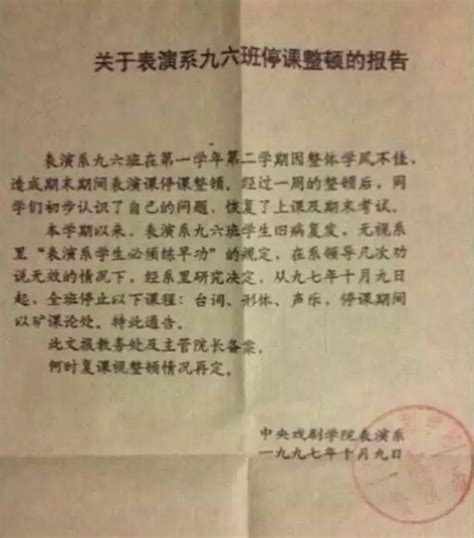 关于表演系九六班停课整顿的报告
表演系九六班在第一学年第二学期因整体学风不佳,
造成期末期间表演课停课整顿。经过一周的整顿后,同
学们初步认识了自己的问题,恢复了上课及期末考试。
本学期以来,表演系九六班学生旧病复发,无视系
里“表演系学生必须练早功”的规定,在系领导几次劝
说无效的情况下,经系里研究决定,从九七年十月九日
起,全班停止以下课程:台词、形体、声乐,停课期间
以旷课论处。特此通告。
此文报教务处及主管院长备案。
何时复课视整顿情况再定。
中央戏剧学院表演系
一九九七年十月九日